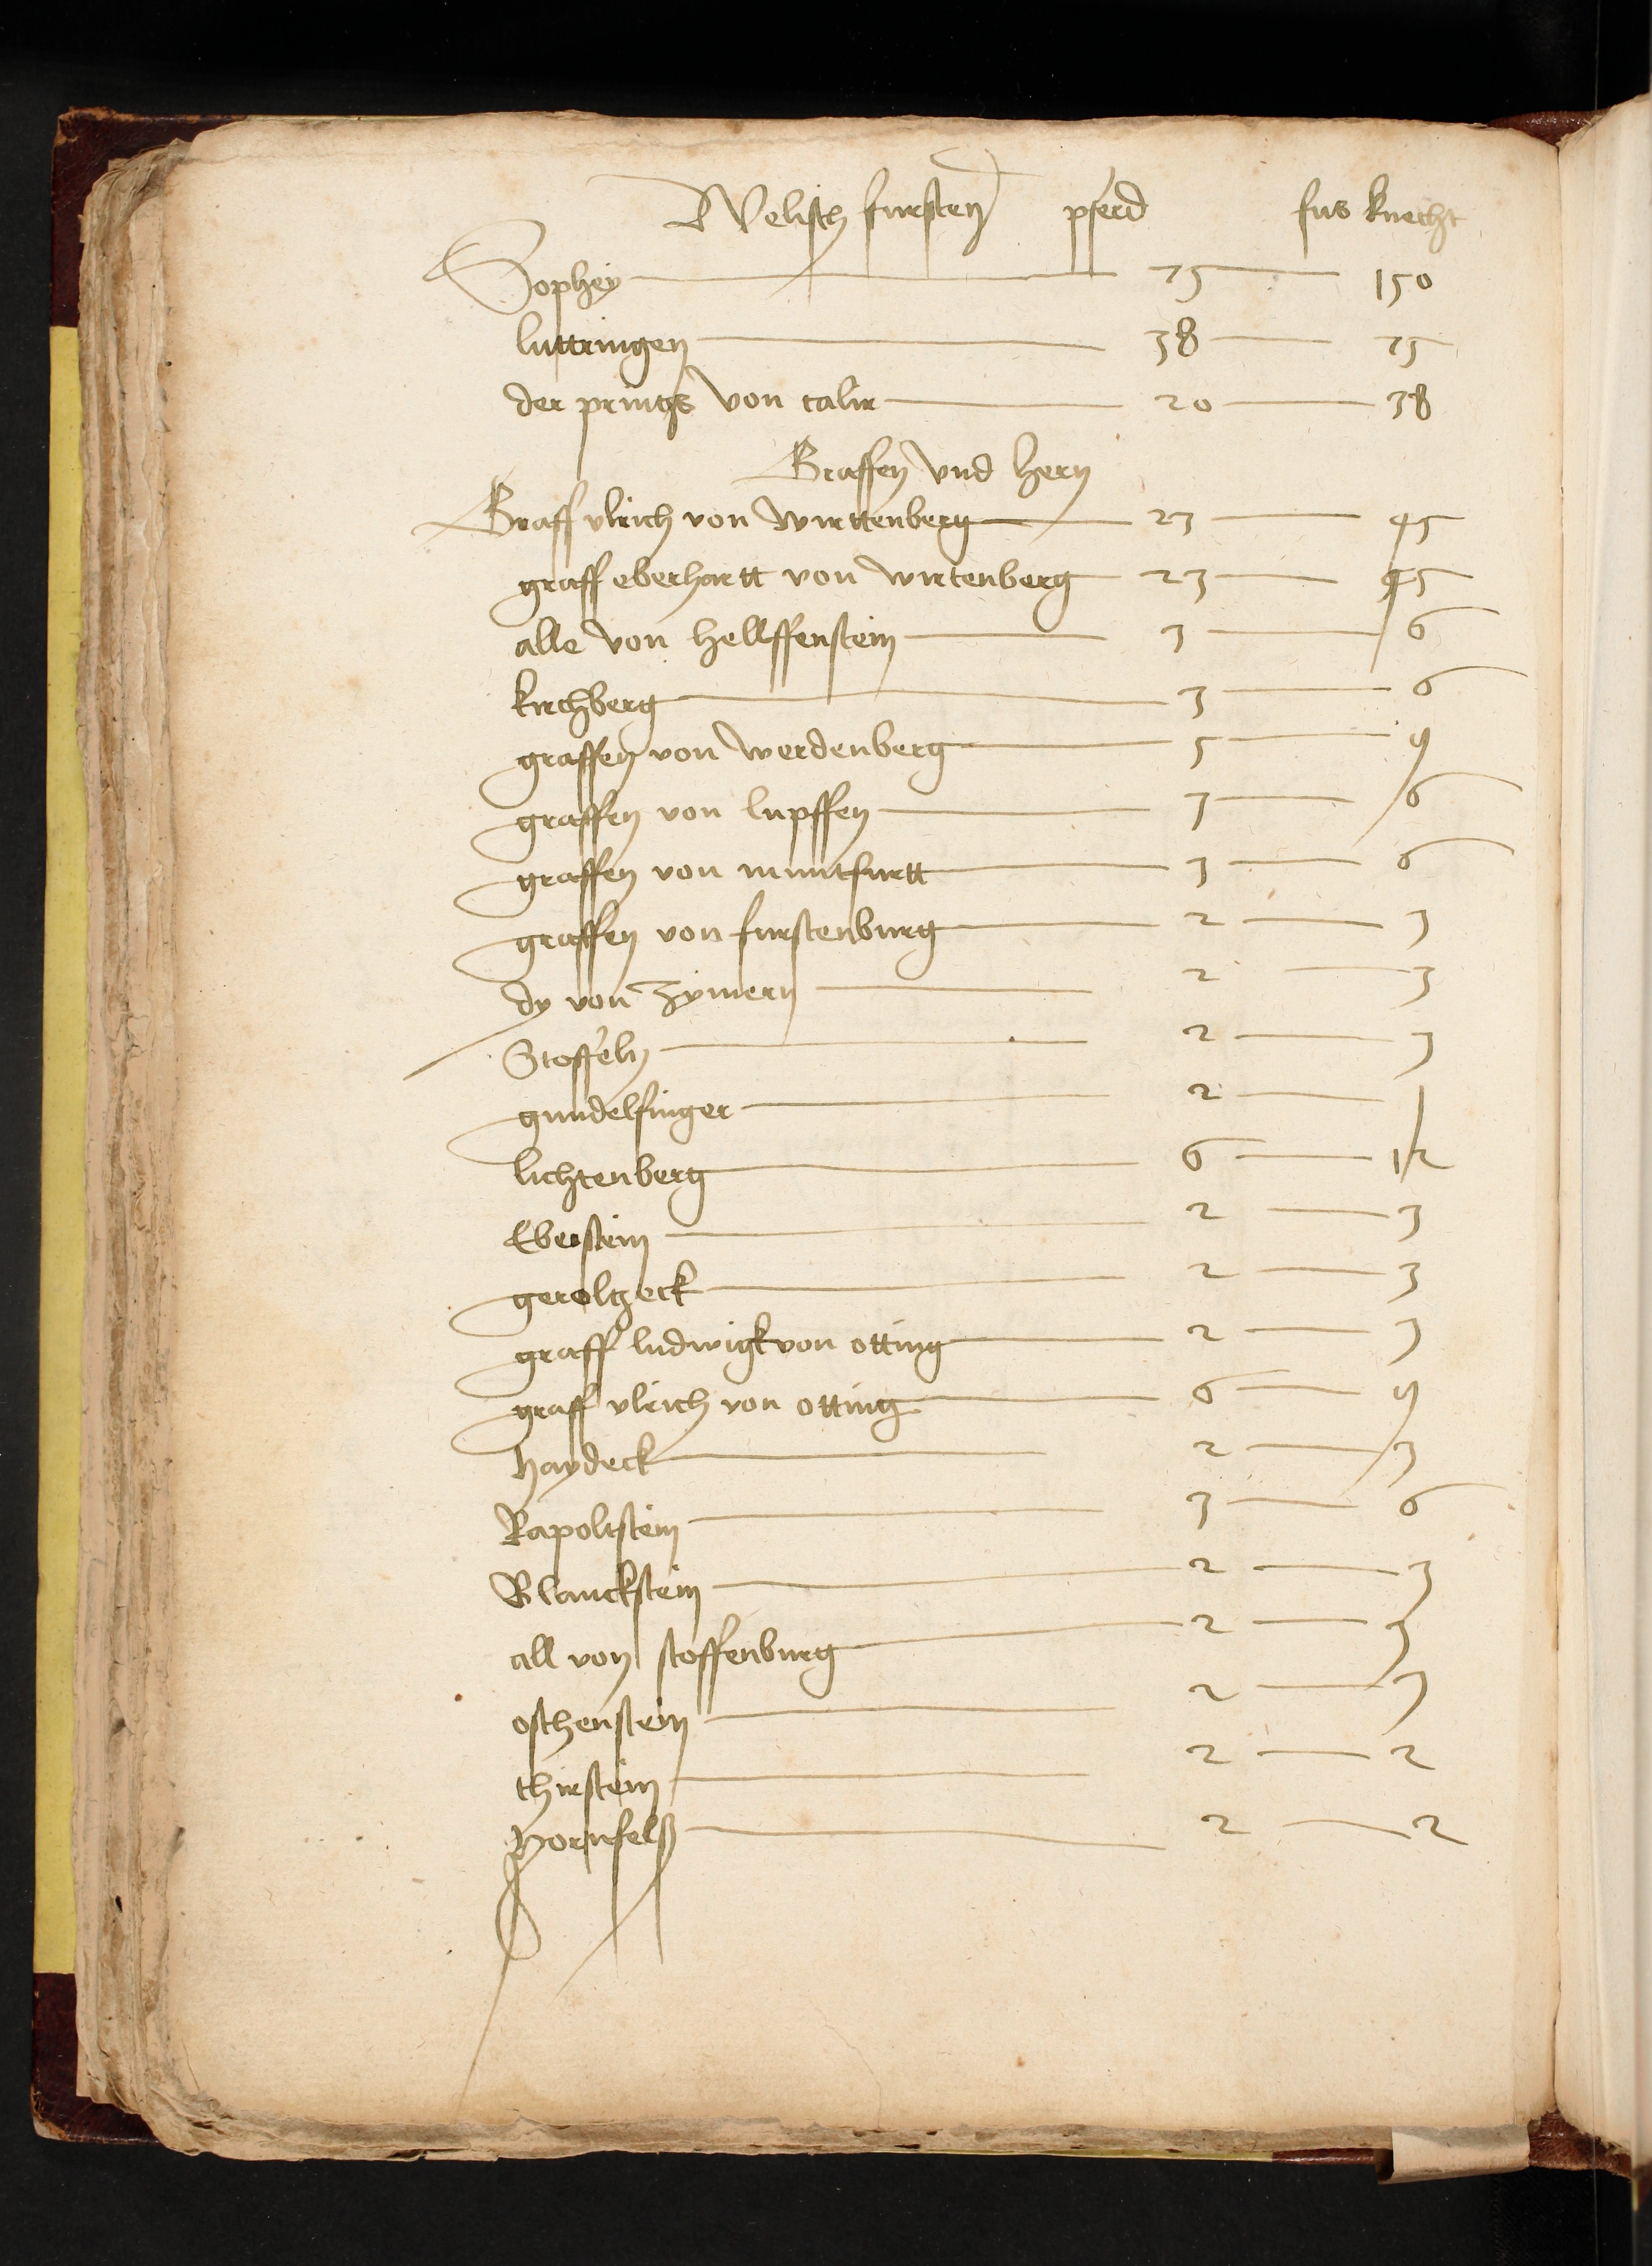 Welisch fursten pferd fus knecht
Sophey 75 150
luttringen 38 75
der printz von calir 20 38
Graffen vnd hern
Graff vlrich von wirttenberg 23 45
graff eberhartt von wirtenberg 23 45
alle von hellffenstein 3 6
kirchberg 3 6
graffen von werdenberg 5 9
graffen von lupffen 3 6
graffen von muntfurtt 3 6
graffen von furstenburg 2 3
dy von zymern 2 3
Stoffeln 2 3
gundelfinger 2
lichtenberg 6 12
Eberstein 2 3
geroltzeck 2 3
graff ludwigk von otting 2 3
graff vlrich von otting 6 9
haydeck 2 3
Rapoltstein 3 6
Blanckstein 2 3
all von stoffenburg 2 3
osthenstein 2 3
thirstein 2 2
hornfelß 2 2